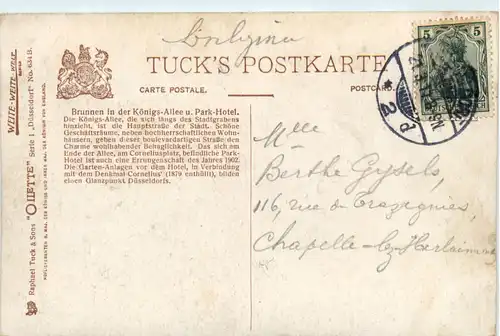 TUCK'S POSTKARTE
CARTE POSTALE.
POSTCARD.
Brunnen in der Königs-Allee u. Park-Hotel.
Die Königs-Allee, die sich längs des Stadtgrabens
hinzieht, ist die Hauptstraße der Stadt. Solche
Geschäftsräume, neben hochherrschaftlichen Wohn-
häusern, geben dieser boulevardartigen Straße den
Charme wohlhabender Behaglichkeit. Das sich am
Ende der Allee, am Corneliusplatz, befindliche Park-
Hotel ist auch eine Errungenschaft des Jahres 1902.
Die Garten-Anlagen vor dem Hotel, in Verbindung
mit dem Denkmal-Cornelius' (1879 enthüllt), bilden
einen Glanzpunkt Düsseldorfs.
WEITE-WEITE-WELT
Raphael Tuck & Sons "OILETTE" Serie I „Düsseldorf" No. 634B.
5
5
2 d
Mlle
Berthe Gysels,
116, rue de Trazegnies,
Chapelle-lez-Herlaimont